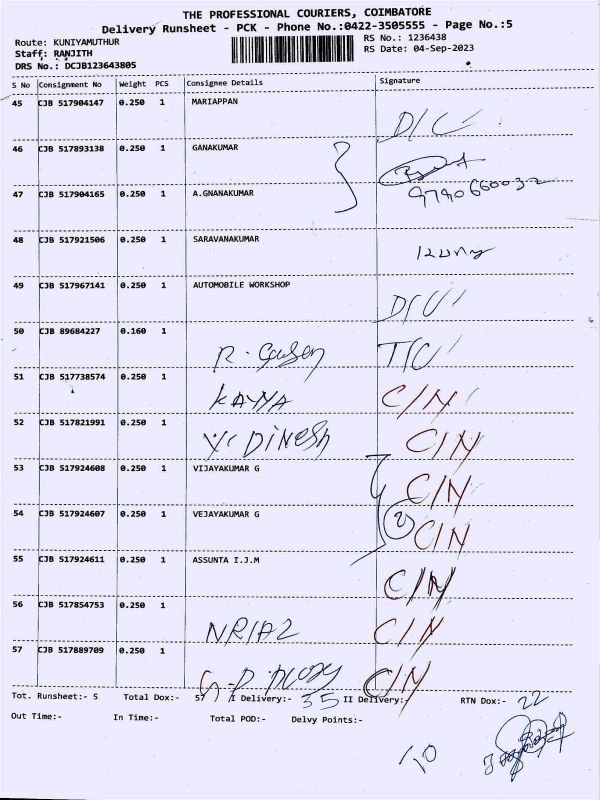 THE PROFESSIONAL COURIERS, COIMBATORE
Delivery Runsheet - PCK - Phone No.:0422-3505555 - Page No.:5
Route: KUNIYAMUTHUR RS No.: 1236438
Staff: RANJITH RS Date: 04-Sep-2023
DRS No.: DCJB123643805
S No Consignment No Weight PCS Consignee Details Signature
45 CJB 517904147 0.250 1 MARIAPPAN
46 CJB 517893138 0.250 1 GANAKUMAR
47 CJB 517904165 0.250 1 A.GNANAKUMAR 9790660032
48 CJB 517921506 0.250 1 SARAVANAKUMAR
49 CJB 517967141 0.250 1 AUTOMOBILE WORKSHOP
50 CJB 89684227 0.160 1
51 CJB 517738574 0.250 1 C/N
52 CJB 517821991 0.250 1 DINESH C/N
53 CJB 517924608 0.250 1 VIJAYAKUMAR G C/N
54 CJB 517924607 0.250 1 VEJAYAKUMAR G 2 C/N
55 CJB 517924611 0.250 1 ASSUNTA I.J.M C/N
56 CJB 517854753 0.250 1 C/N
57 CJB 517889709 0.250 1 C/N
Tot. Runsheet:- 5 Total Dox:- 57 I Delivery:- 35 II Delivery:- RTN Dox:- 22
Out Time:- In Time:- Total POD:- Delvy Points:-